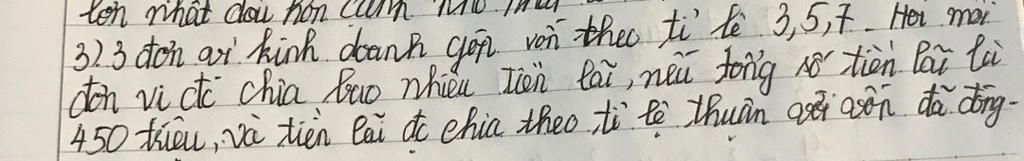 lớn nhất dài hơn cạnh nhỏ
3) 3 đơn vị kinh doanh góp vốn theo tỉ lệ 3,5,7. Hỏi mỗi
đơn vị đc chia bao nhiêu tiền lãi, nếu tổng số tiền lãi là
450 triệu, và tiền lãi đc chia theo tỉ lệ thuận với vốn đã đóng.